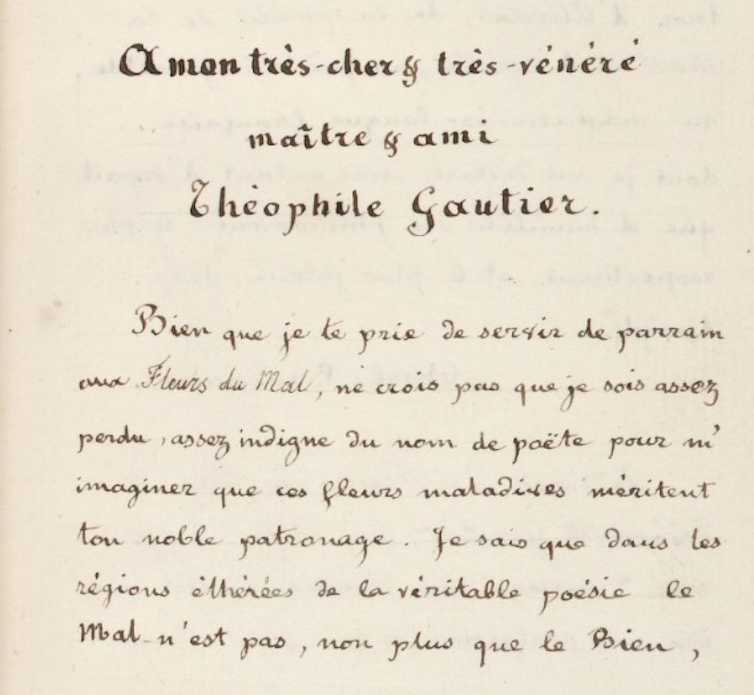 A mon très-cher & très-vénéré
maître & ami
Théophile Gautier.
Bien que je te prie de servir de parrain
aux Fleurs du Mal, ne crois pas que je sois assez
perdu, assez indigne du nom de poëte pour m'
imaginer que ces fleurs maladives méritent
ton noble patronage. Je sais que dans les
régions éthérées de la véritable poésie le
Mal n'est pas, non plus que le Bien,